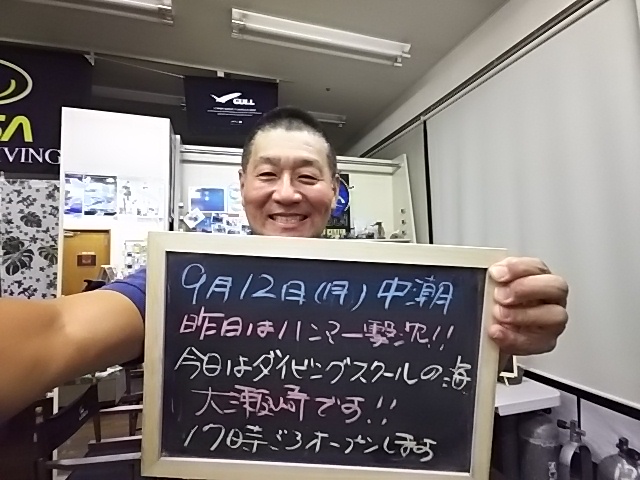 SA
IVING
GULL
9月12日(月)中潮
昨日はハンマー撃沈!!
今日はダイビングスクールの海
大瀬崎です!!
17時ごろオープンします